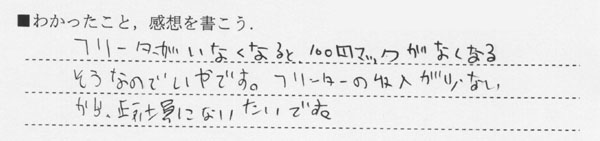 ■わかったこと，感想を書こう.
フリーターがいなくなると、100円マックがなくなる
そうなのでいやです。フリーターの収入が少ない
から、正社員になりたいです。